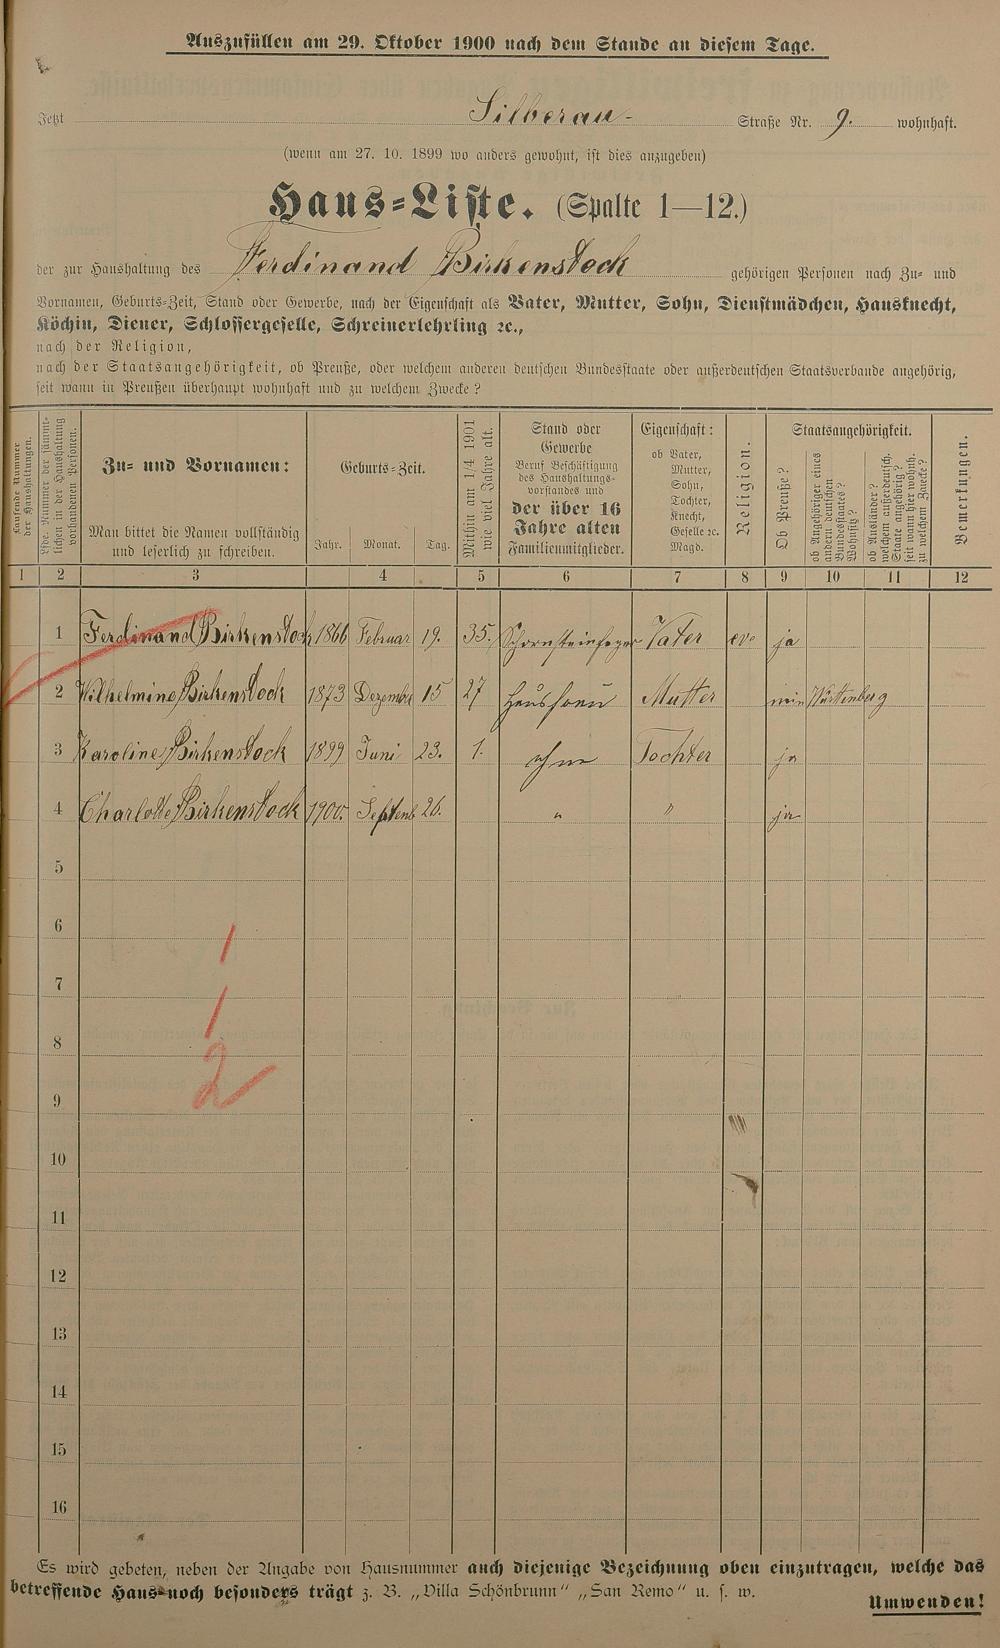 Auszufüllen am 29. Oktober 1900 nach dem Stande an diesem Tage.
Jetzt Silberau- Straße Nr. 9. wohnhaft.
(wenn am 27. 10. 1899 wo anders gewohnt, ist dies anzugeben)
Haus-Liste. (Spalte 1—12.)
der zur Haushaltung des Ferdinand Birkenstock gehörigen Personen nach Zu- und
Vornamen, Geburts-Zeit, Stand oder Gewerbe, nach der Eigenschaft als Vater, Mutter, Sohn, Dienstmädchen, Hausknecht,
Köchin, Diener, Schlossergeselle, Schreinerlehrling ec.,
nach der Religion,
nach der Staatsangehörigkeit, ob Preuße, oder welchem anderen deutschen Bundesstaate oder außerdeutschen Staatsverbande angehörig,
seit wann in Preußen überhaupt wohnhaft und zu welchem Zwecke?
Laufende Nummer
der Haushaltungen.
Lfde. Nummer der sämmt-
lichen in der Haushaltung
vorhandenen Personen.
Zu- und Vornamen:
Man bittet die Namen vollständig
und leserlich zu schreiben.
Geburts-Zeit.
Jahr. Monat. Tag.
Mithin am 1/4 1901
wie viel Jahre alt.
Stand oder
Gewerbe
Beruf Beschäftigung
des Haushaltungs-
vorstandes und
der über 16
Jahre alten
Familienmitglieder.
Eigenschaft:
ob Vater,
Mutter,
Sohn,
Tochter,
Knecht,
Geselle ec.
Magd.
Religion.
Staatsangehörigkeit.
Ob Preuße?
ob Angehöriger eines
andern deutschen
Bundesstaates?
Wohnsitz?
ob Ausländer?
welchem außerdeutsch.
Staate angehörig?
seit wann hier wohnh.
zu welchem Zwecke?
Bemerkungen.
1 2 3 4 5 6 7 8 9 10 11 12
1 Ferdinand Birkenstock 1866 Februar 19. 35. Schornsteinfeger Vater ev. ja
2 Wilhelmine Birkenstock 1873 Dezember 15 27 Hausfrau Mutter nein Württenberg
3 Karoline Birkenstock 1899 Juni 23. 1. ohne Tochter ja
4 Charlotte Birkenstock 1900. Septemb 26. " " ja
5
6
1
7
1
8
2
9
10
11
12
13
14
15
16
Es wird gebeten, neben der Angabe von Hausnummer auch diejenige Bezeichnung oben einzutragen, welche das
betreffende Haus noch besonders trägt z. B. „Villa Schönbrunn" „San Remo" u. s. w.
Umwenden!